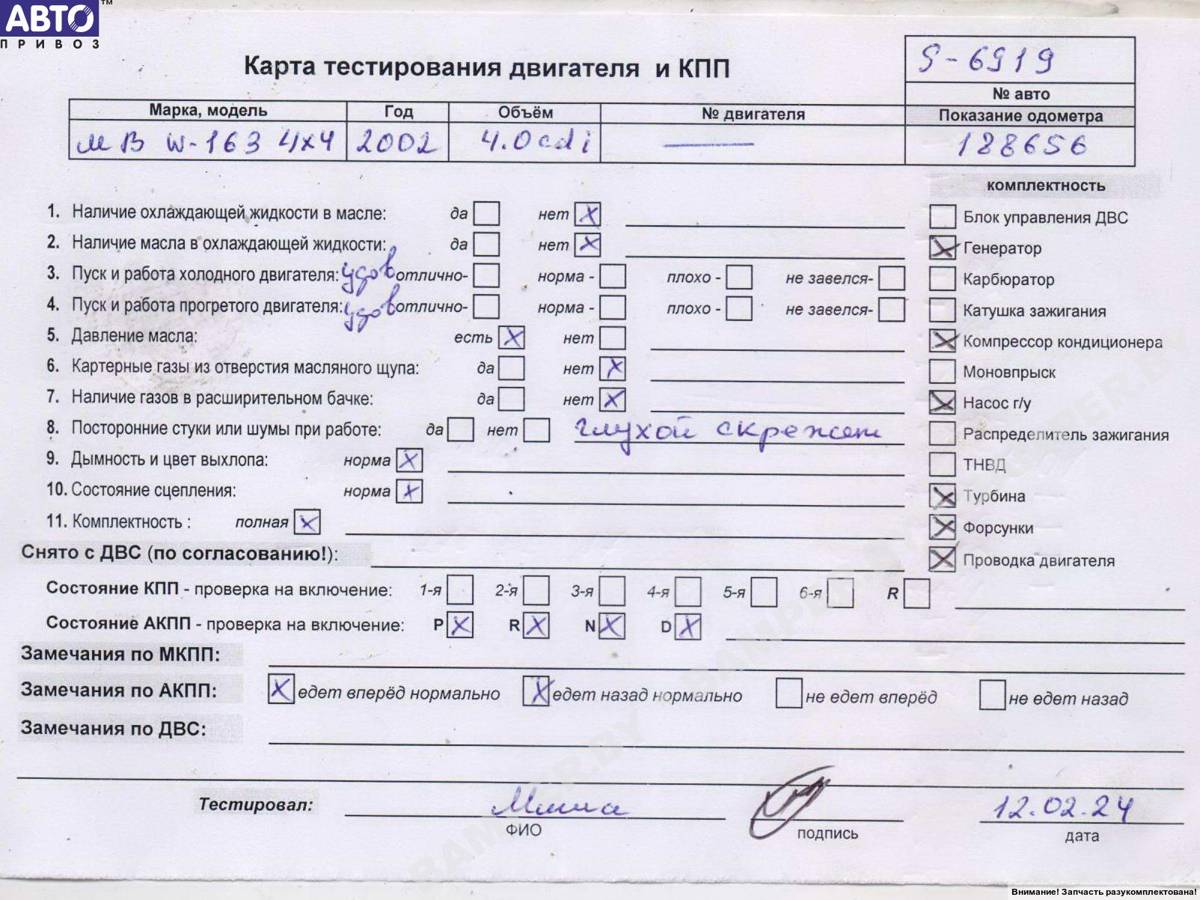 АВТО™
ПРИВОЗ
Карта тестирования двигателя и КПП
S-6919
№ авто
Марка, модель Год Объём № двигателя Показание одометра
МВ W-163 4x4 2002 4.0cdi — 188656
комплектность
1. Наличие охлаждающей жидкости в масле: да нет x
Блок управления ДВС
2. Наличие масла в охлаждающей жидкости: да нет x
x Генератор
3. Пуск и работа холодного двигателя: удов отлично- норма - плохо - не завелся-
Карбюратор
4. Пуск и работа прогретого двигателя: удов отлично- норма - плохо - не завелся-
Катушка зажигания
5. Давление масла: есть x нет
x Компрессор кондиционера
6. Картерные газы из отверстия масляного щупа: да нет x
Моновпрыск
7. Наличие газов в расширительном бачке: да нет x
x Насос г/у
8. Посторонние стуки или шумы при работе: да нет глухой скрежет
Распределитель зажигания
9. Дымность и цвет выхлопа: норма x
ТНВД
10. Состояние сцепления: норма x
x Турбина
11. Комплектность : полная x
x Форсунки
Снято с ДВС (по согласованию!):
x Проводка двигателя
Состояние КПП - проверка на включение: 1-я 2-я 3-я 4-я 5-я 6-я R
Состояние АКПП - проверка на включение: P x R x N x D x
Замечания по МКПП:
Замечания по АКПП: x едет вперёд нормально x едет назад нормально не едет вперёд не едет назад
Замечания по ДВС:
Тестировал: Миша 12.02.24
ФИО подпись дата
BAMPER.BY
Внимание! Запчасть разукомплектована!